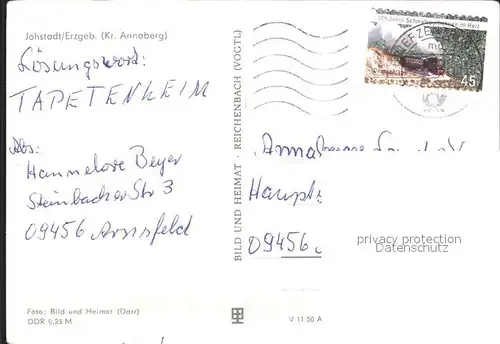 Jöhstadt/Erzgeb. (Kr. Annaberg)
Lösungswort:
TAPETENLEIM
Abs:
Hannelore Beyer
Steinbacher Str 3
09456 Arnsfeld
Foto: Bild und Heimat (Darr)
DDR 0,25 M
BILD UND HEIMAT · REICHENBACH (VOGTL)
V 11 50 A
125 Jahre Schmalspurbahnen im Harz
45
BRIEFZEN
Haupt
09456
privacy protection
Datenschutz